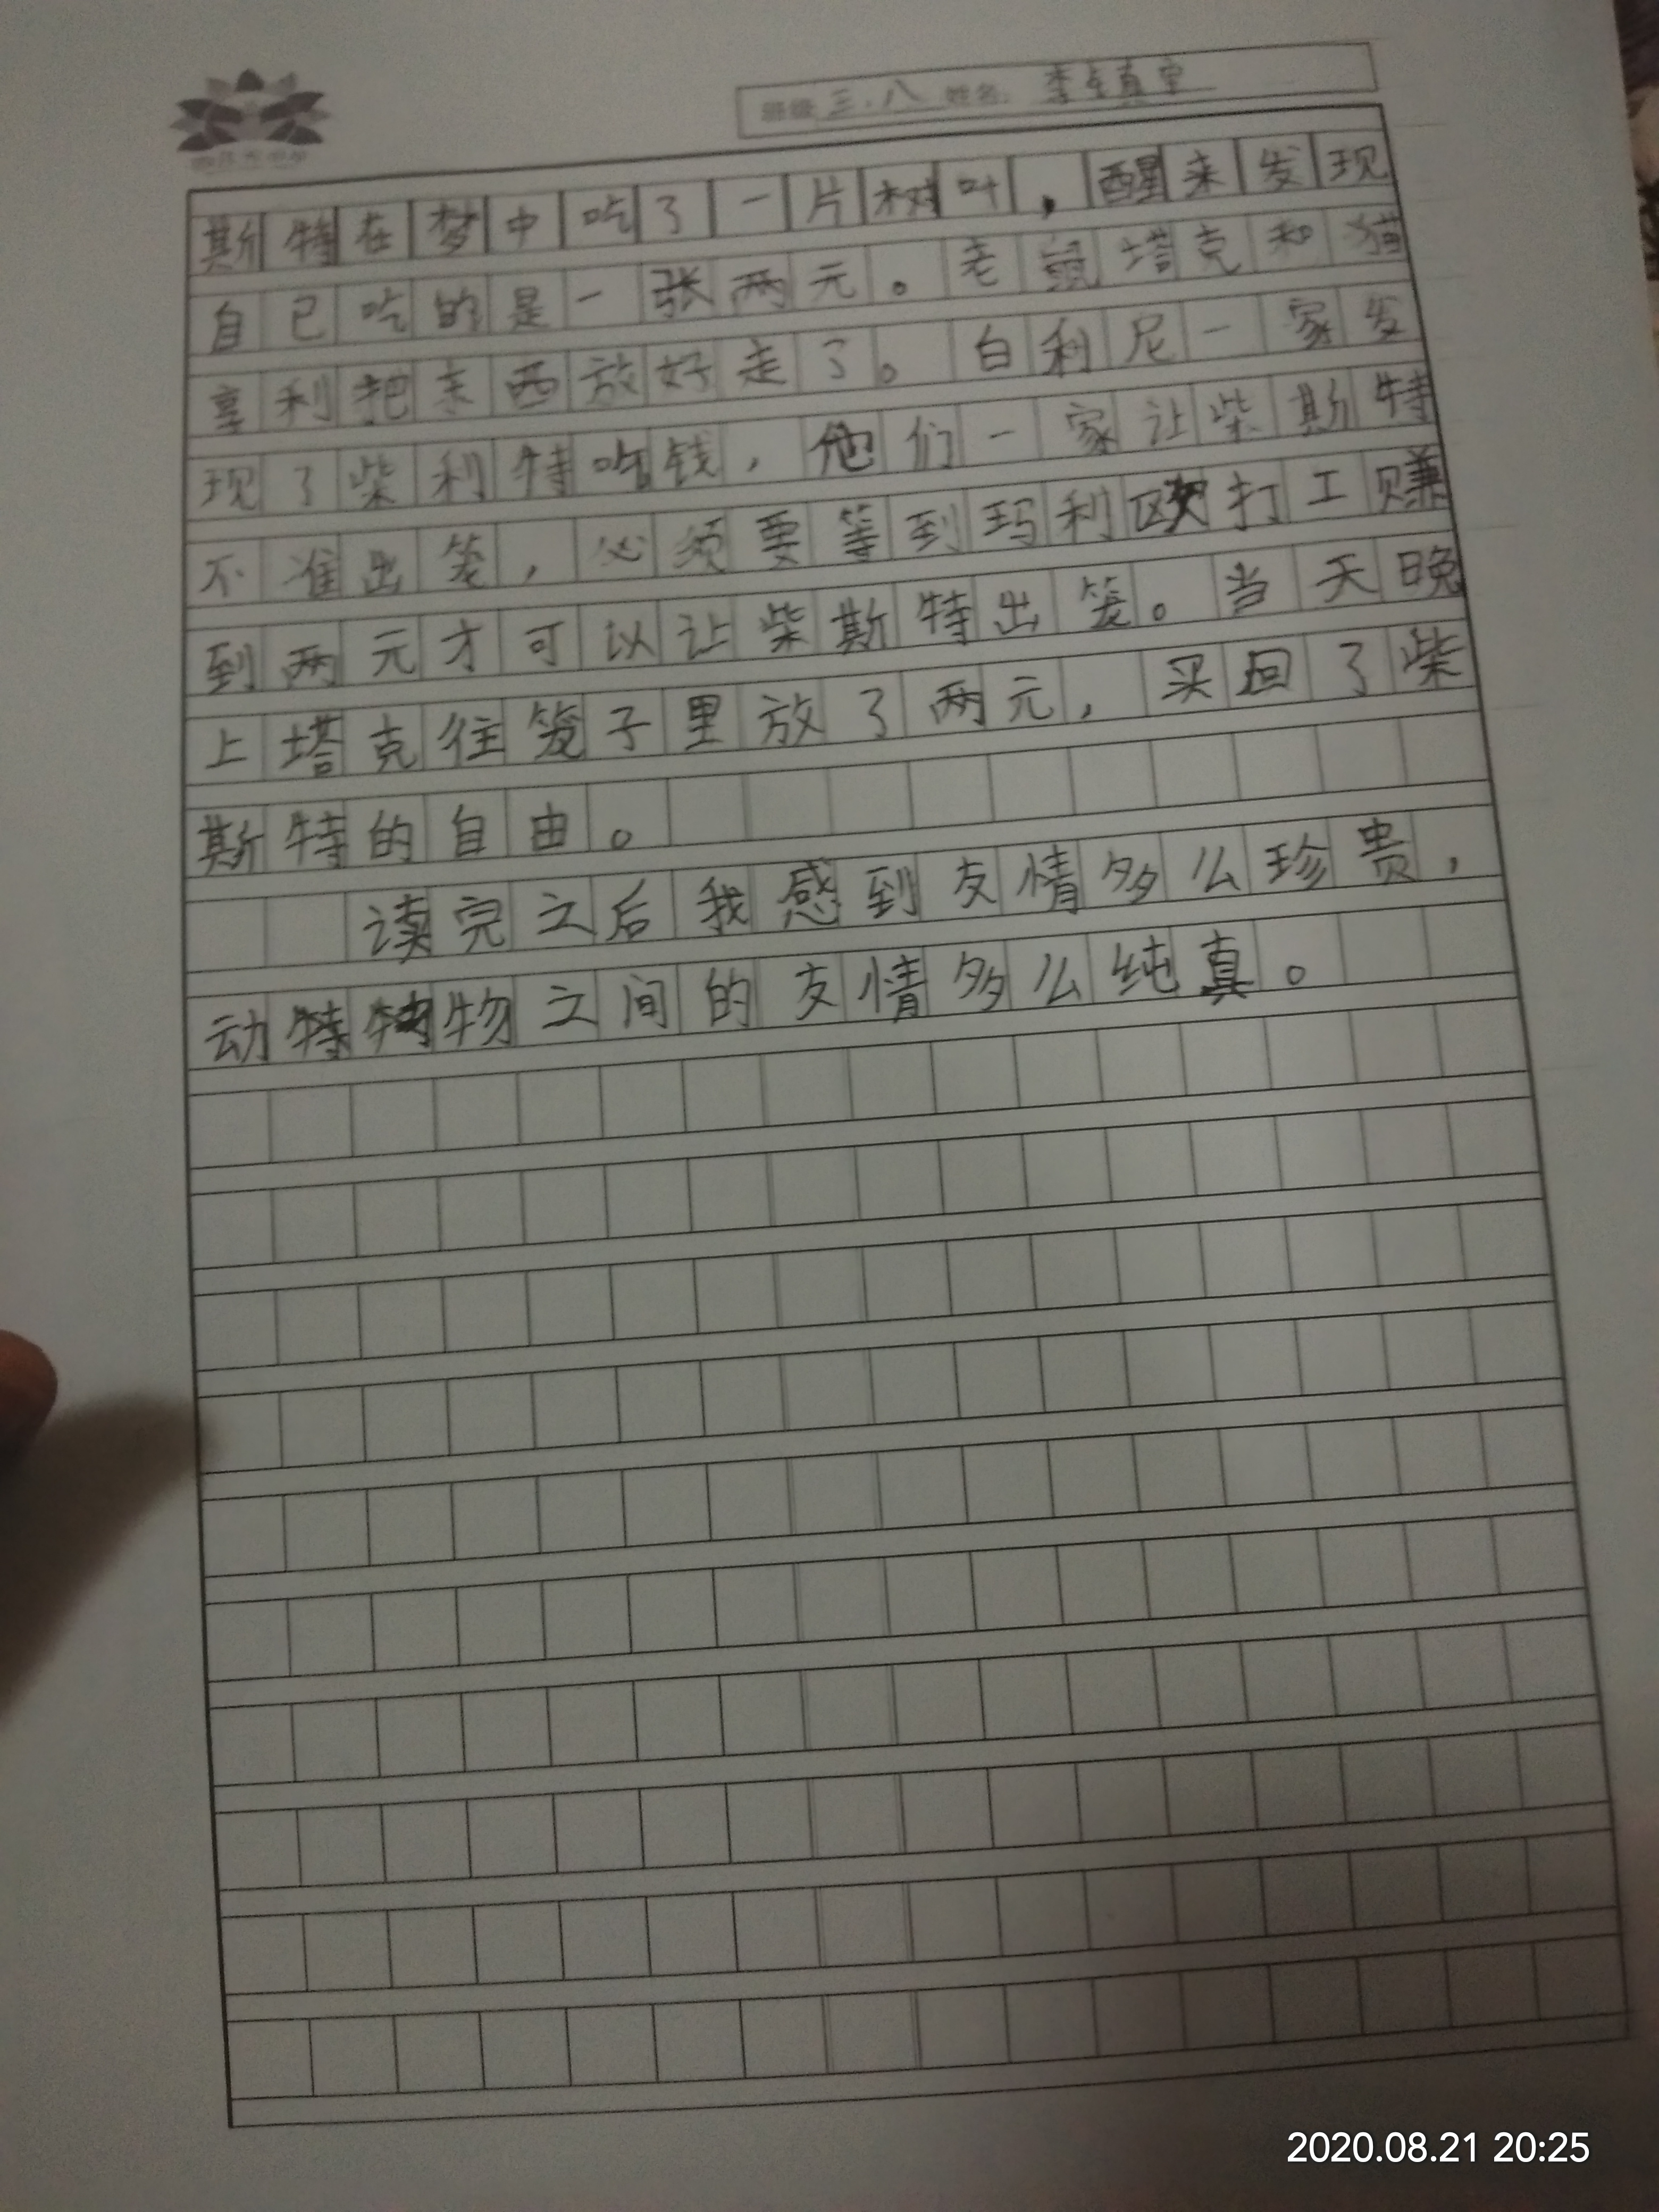 班级 三.八 姓名:
斯特在梦中吃了一片树叶，醒来发现
自己吃的是一张两元。老鼠塔克和猫
亨利把东西放好走了。白利尼一家发
现了柴利特吃钱，他们一家让柴斯特
不准出笼，必须要等到玛利欧打工赚
到两元才可以让柴斯特出笼。当天晚
上塔克往笼子里放了两元，买回了柴
斯特的自由。
读完之后我感到友情多么珍贵，
动物之间的友情多么纯真。
2020.08.21 20:25